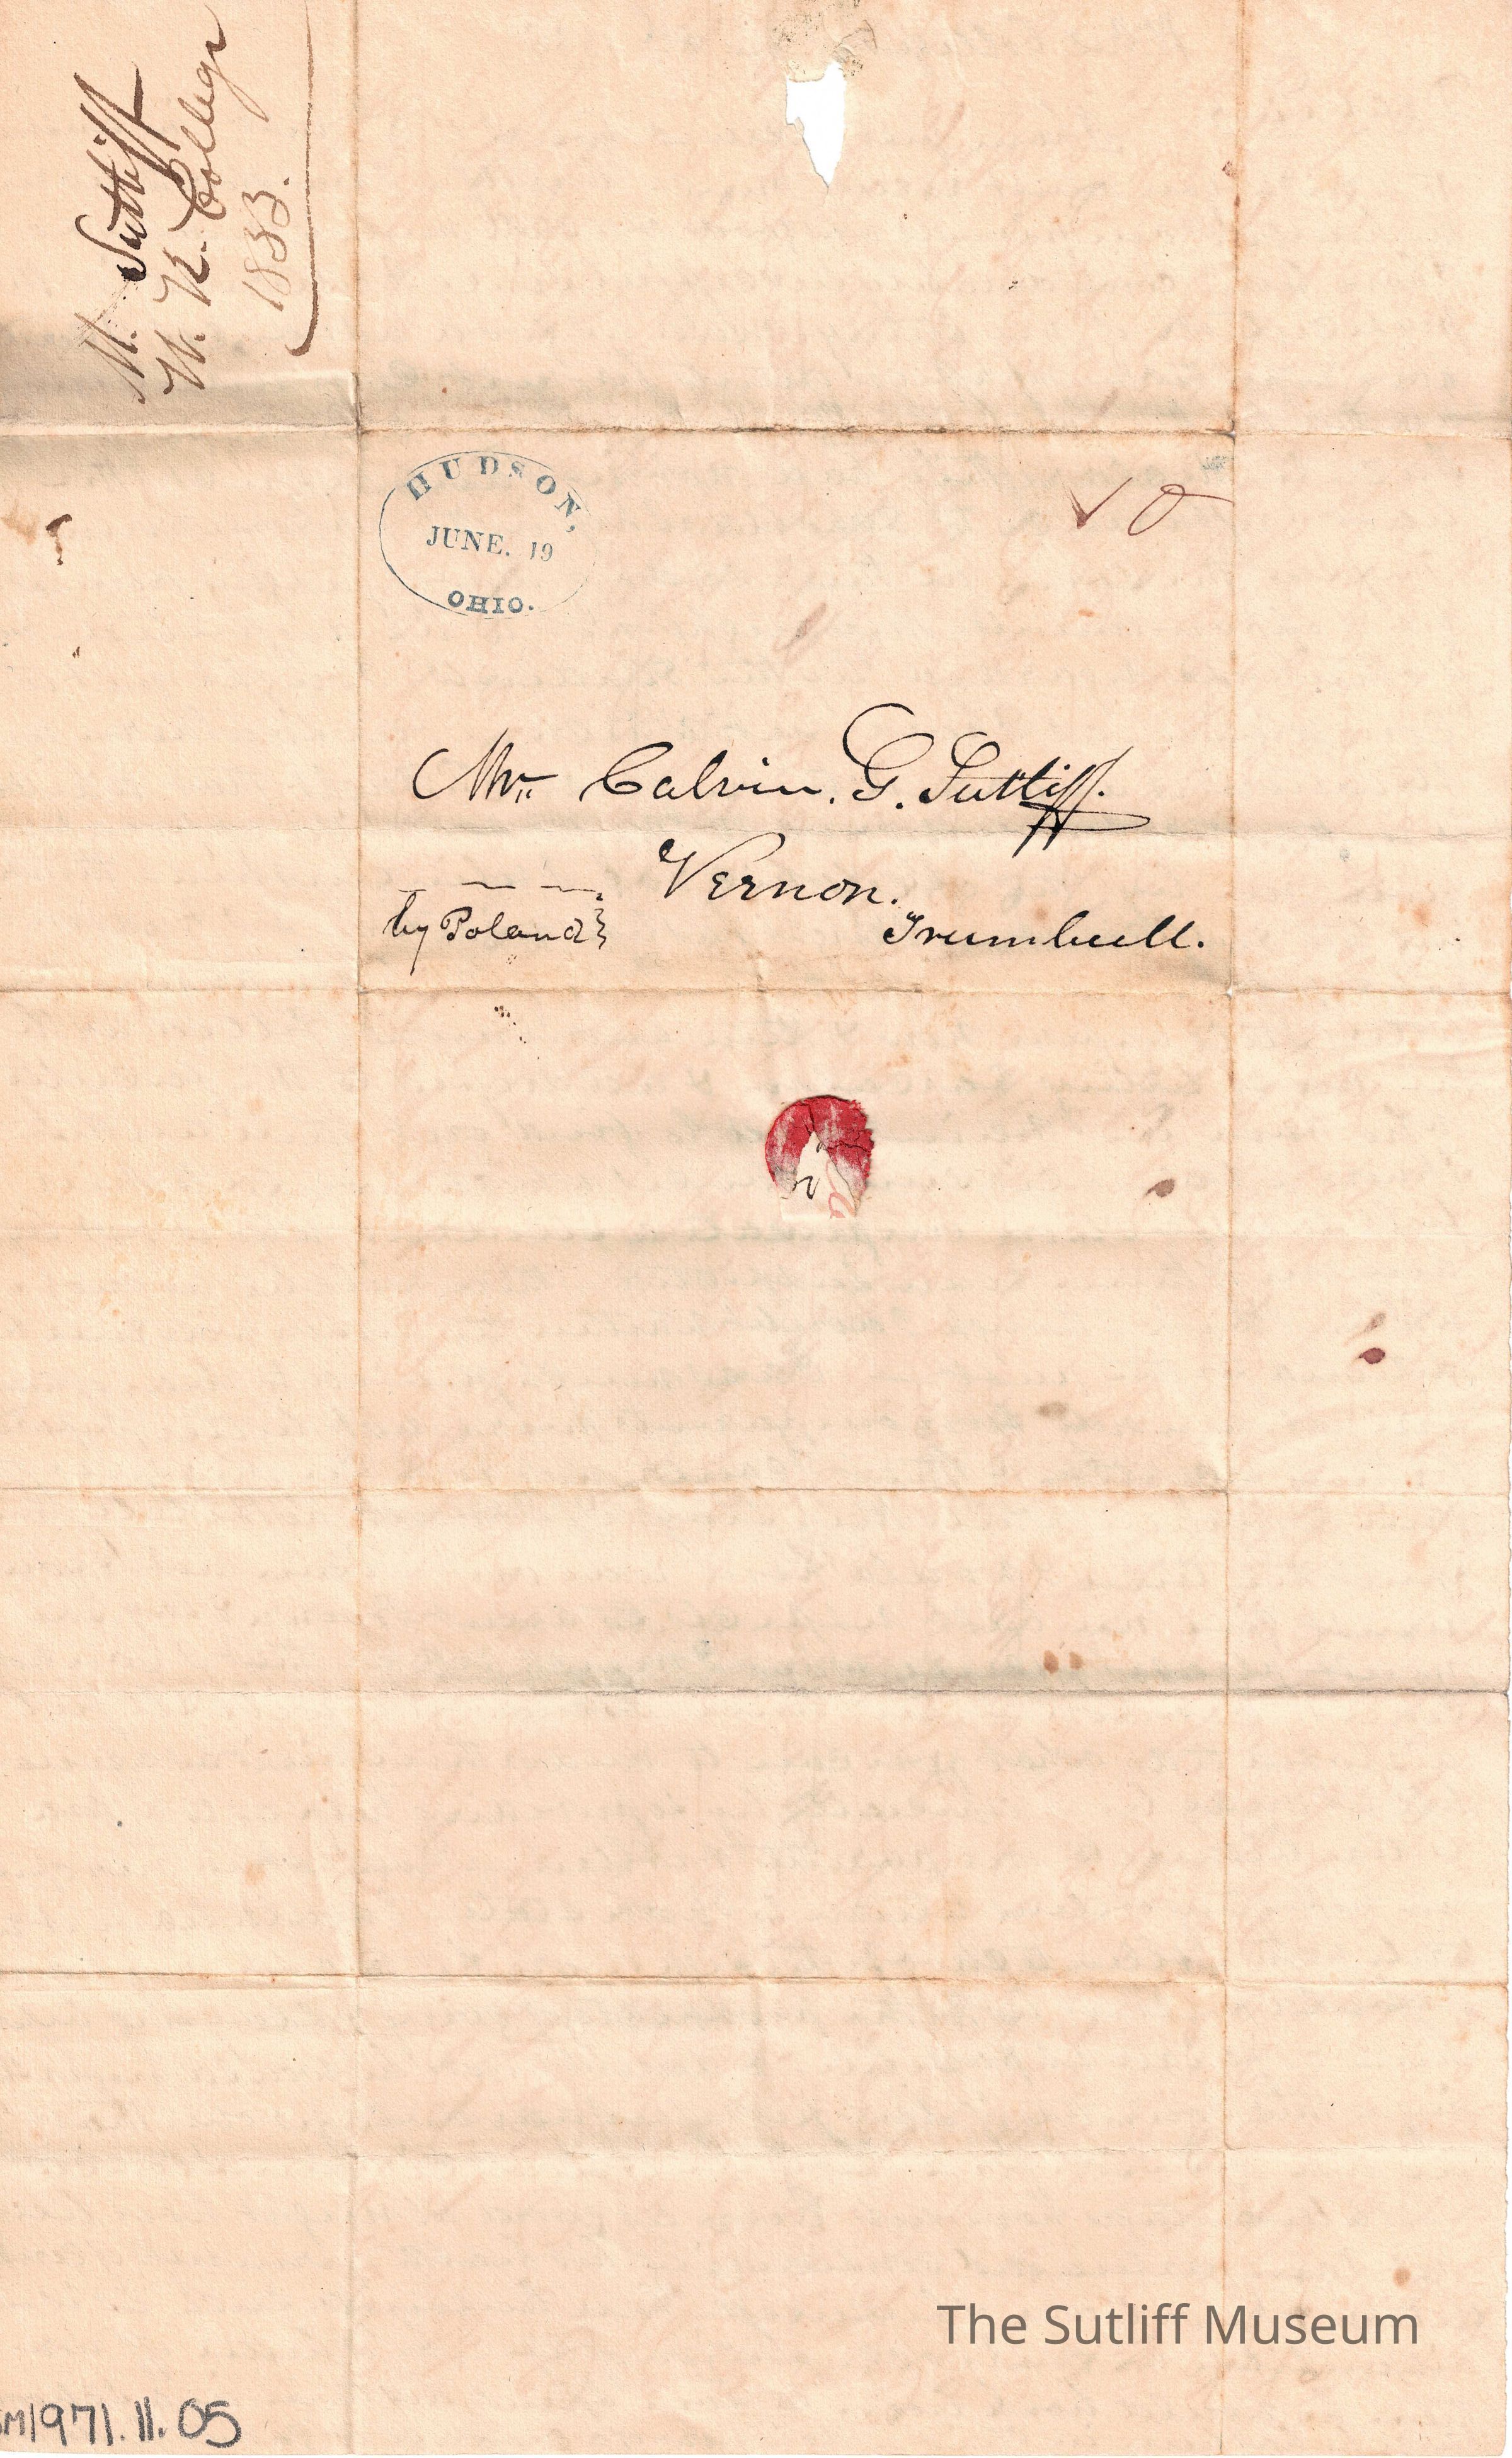 M. Sutliff
W. R. College
1833.
HUDSON,
JUNE. 19
OHIO.
Mr. Calvin. G. Sutliff.
Vernon.
by Poland}
Trumbull.
The Sutliff Museum
SM1971.11.05